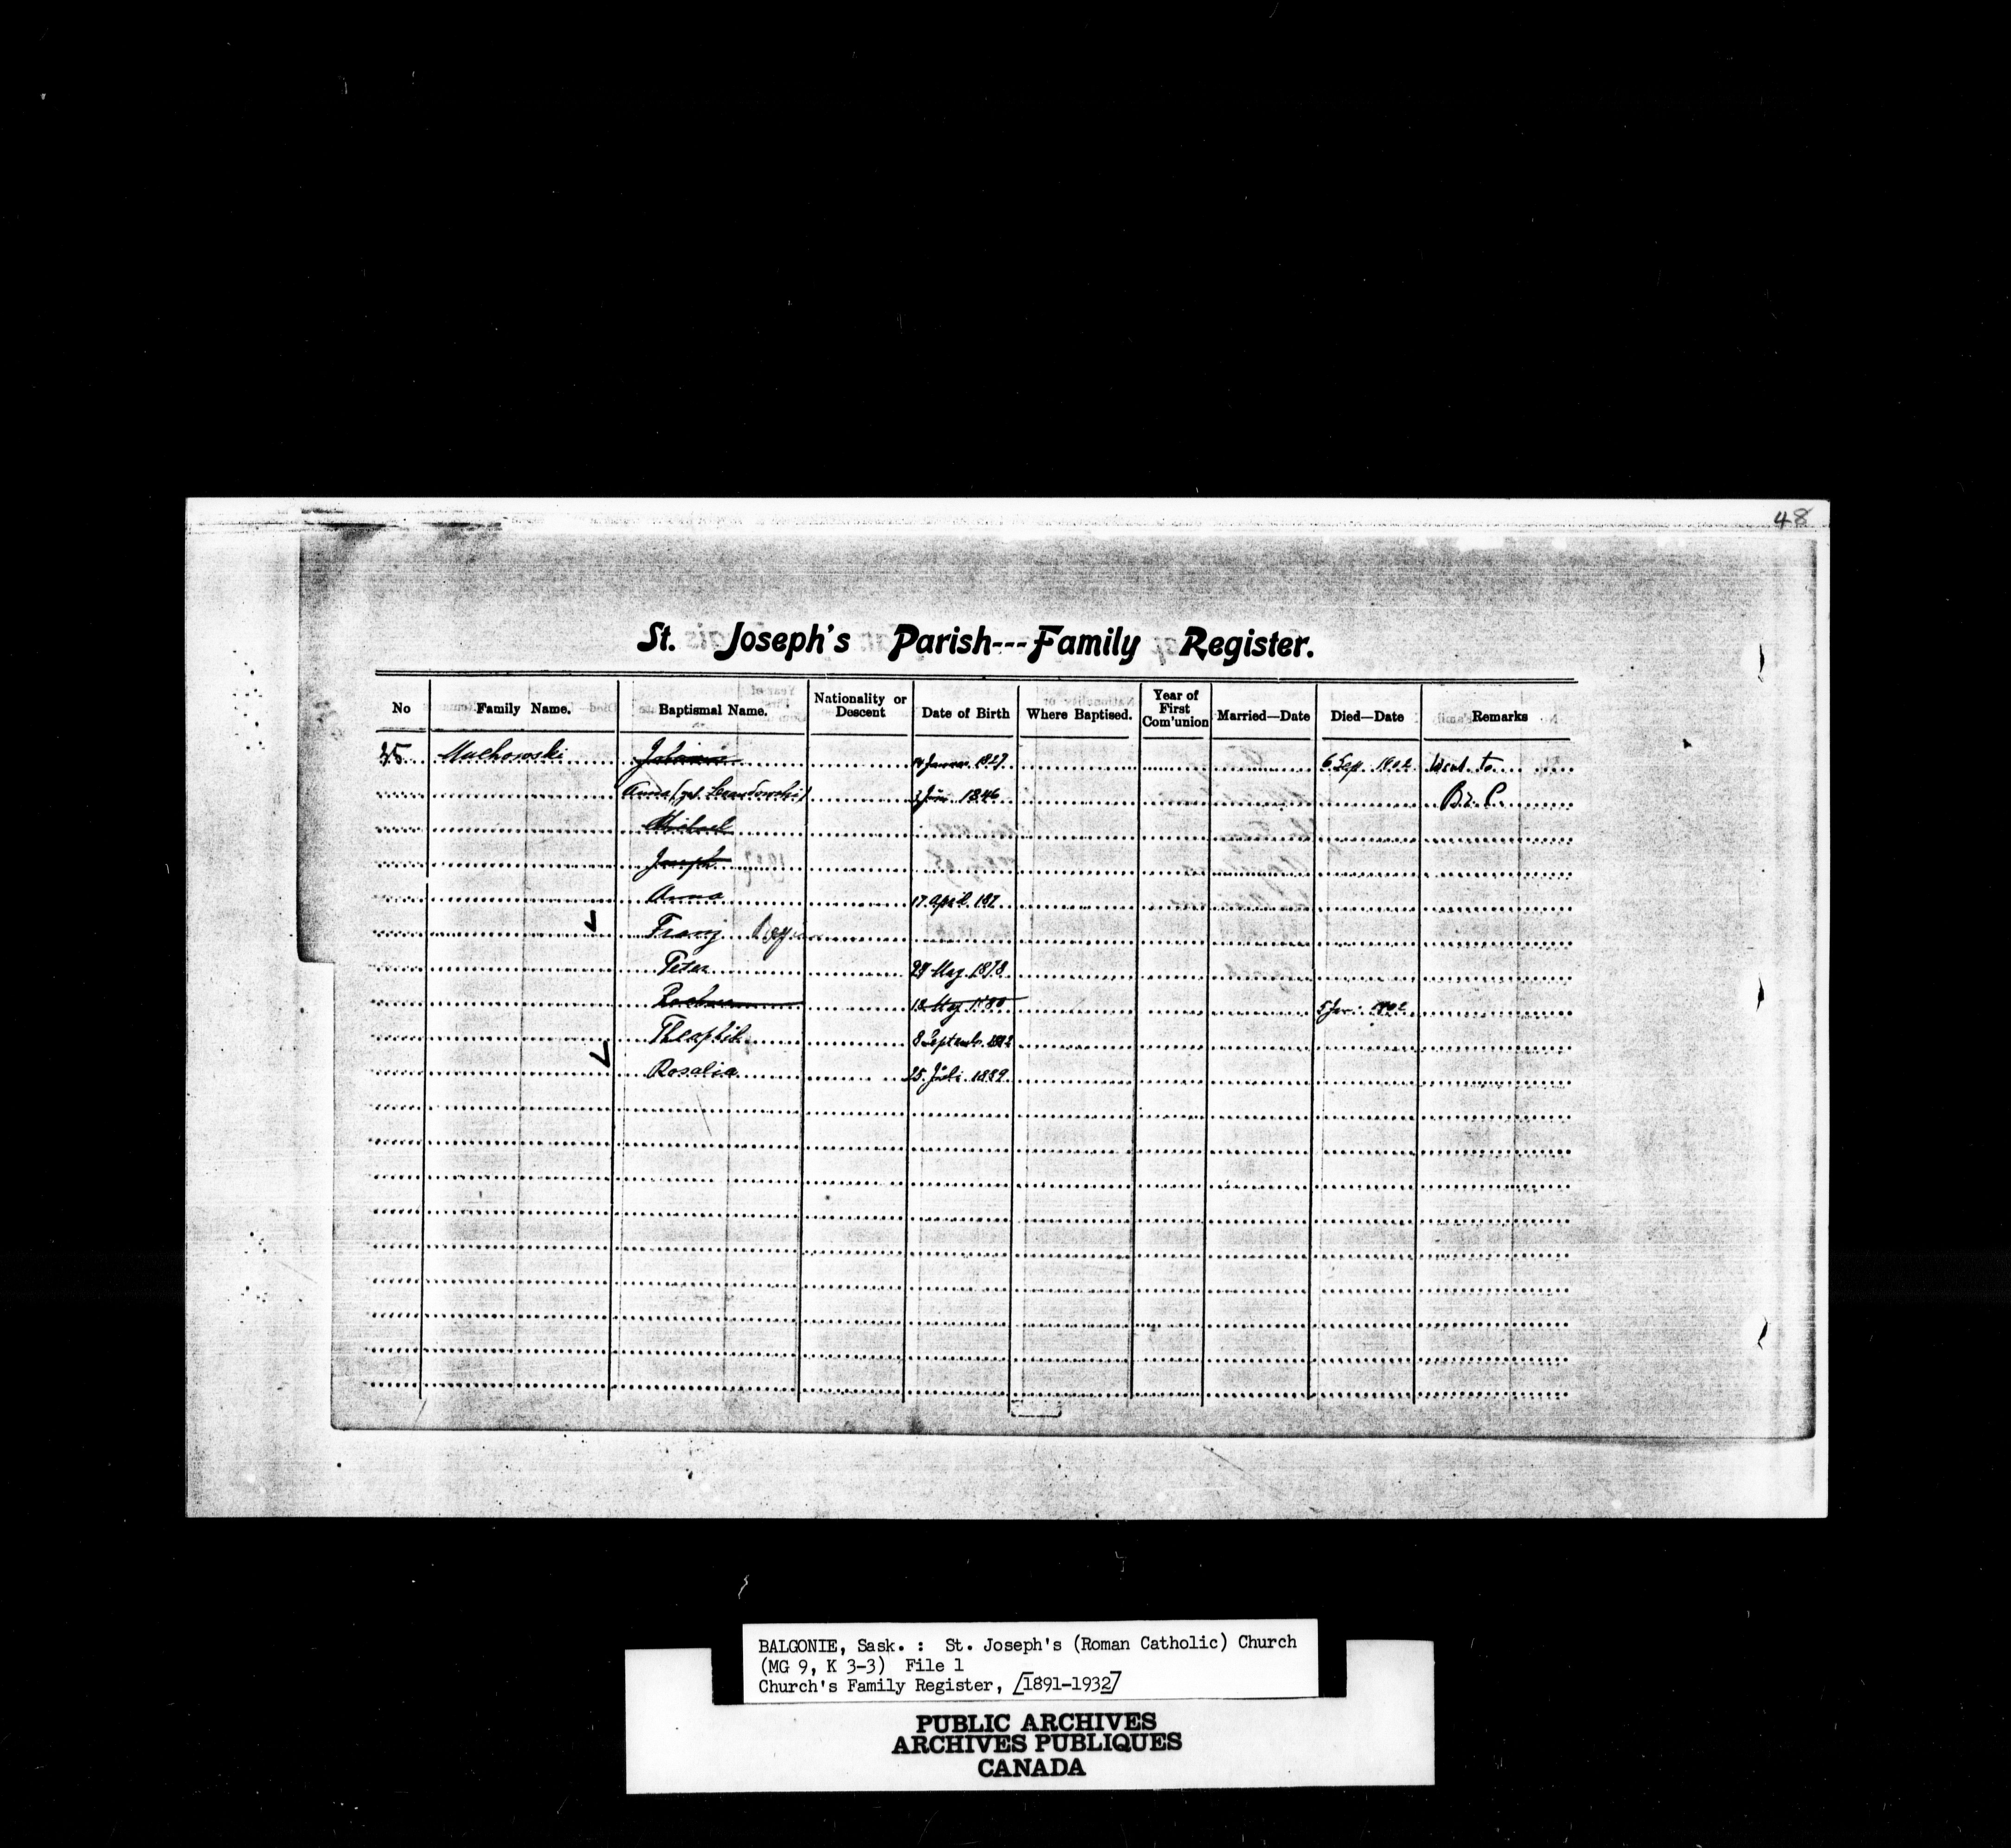 48
St. Joseph's Parish---Family Register.
No Family Name. Baptismal Name. Nationality or Descent Date of Birth Where Baptised. Year of First Com'union Married—Date Died—Date Remarks
Muchowski 1827 6 Sep. 1902 Went to
Anna 1846 B. C.
Michael
Joseph
Anna 17 April
Franz
Peter May 1878
18 May 1880 1902
Theophil 8 Septemb.
Rosalia 25. Juli 1889
BALGONIE, Sask. : St. Joseph's (Roman Catholic) Church
(MG 9, K 3-3) File 1
Church's Family Register, [1891-1932]
PUBLIC ARCHIVES
ARCHIVES PUBLIQUES
CANADA